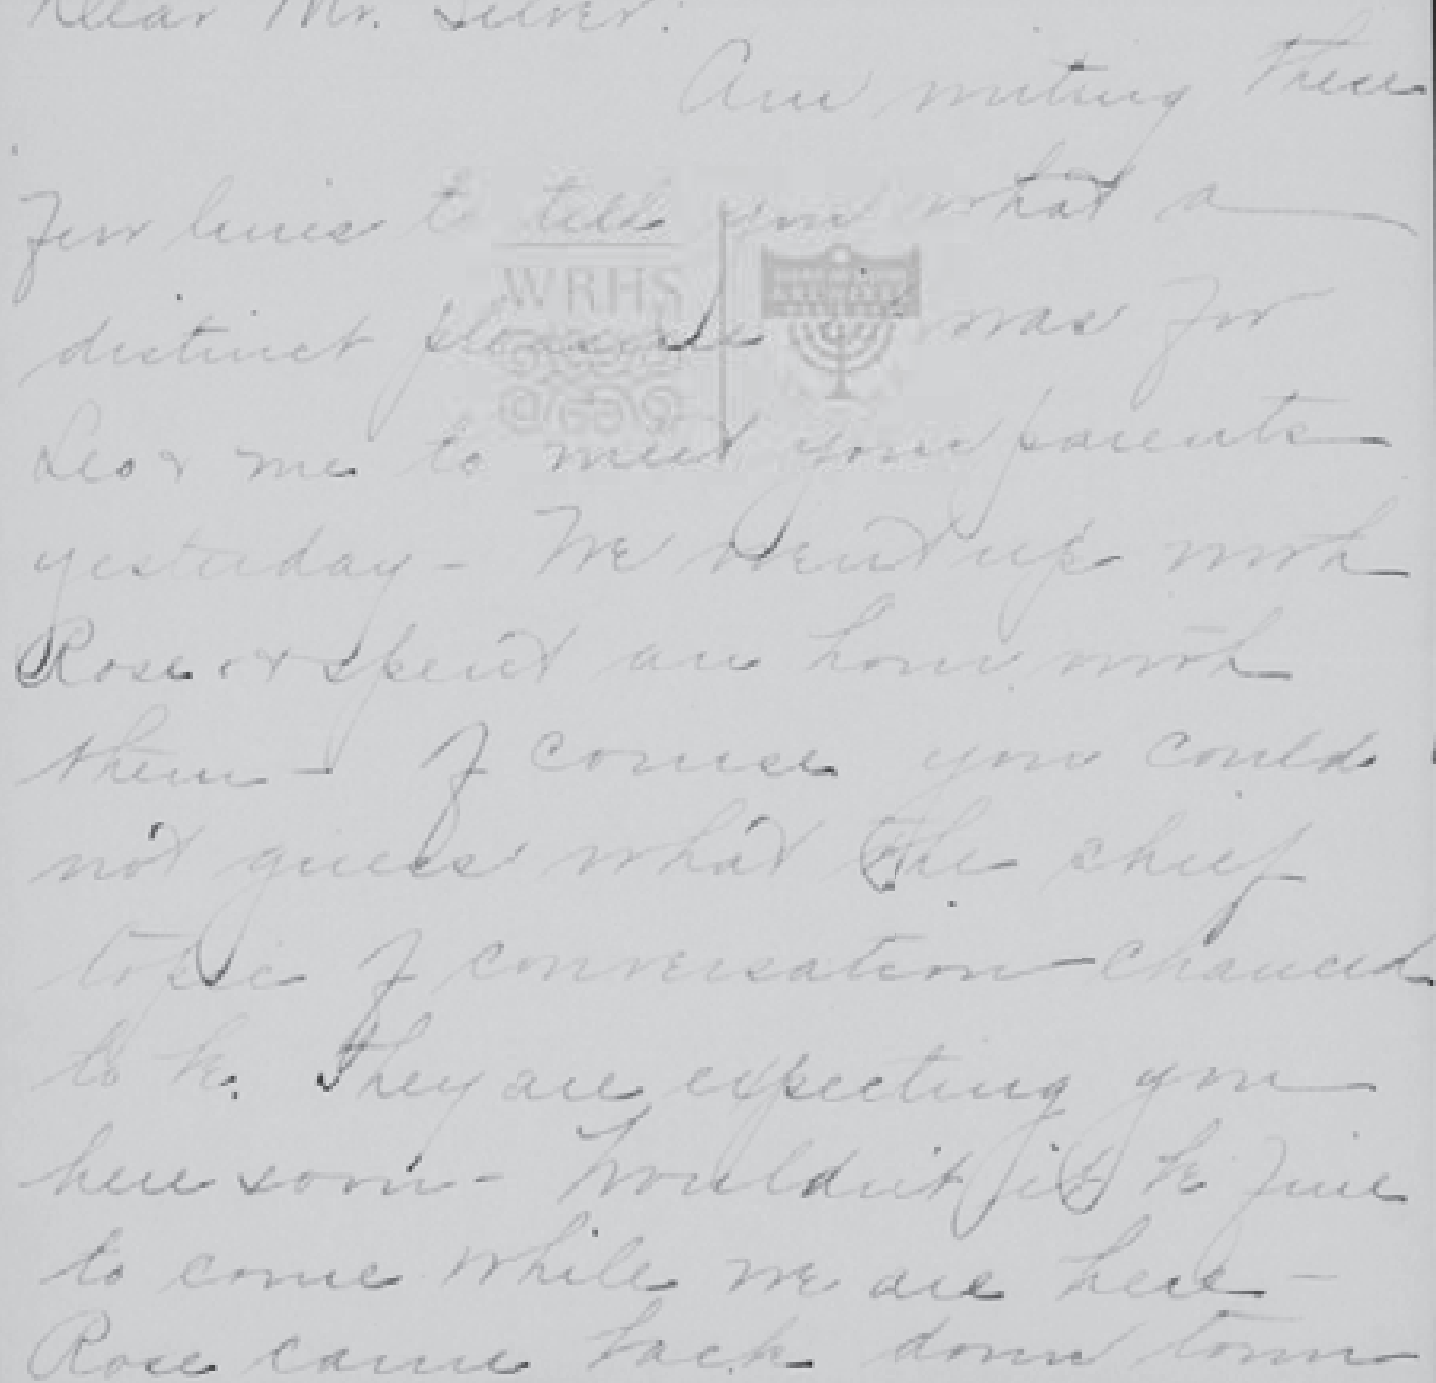 Dear Mr. Silver:
Am writing these
few lines to tell you what a
distinct pleasure it was for
Leo & me to meet your parents
yesterday - We went up with
Rose & spent an hour with
them - Of course you could
not guess what the chief
topic of conversation chanced
to be. They are expecting you
here soon - Wouldn't it be fine
to come while we are here -
Rose came back down town
WRHS